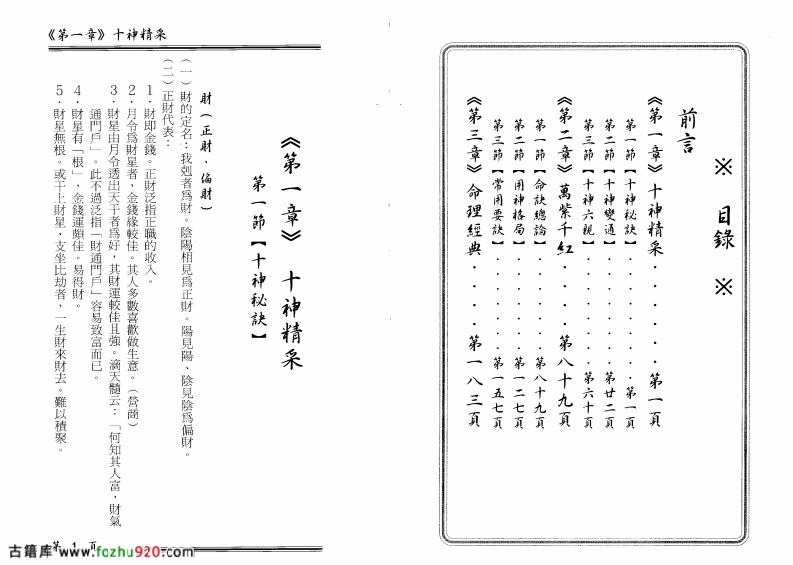 ※ 目錄 ※
前言
《第一章》十神精采・・・・・・第一頁
第一節【十神秘訣】・・・・・・第一頁
第二節【十神變通】・・・・・・第廿二頁
第三節【十神六親】・・・・・・第六十頁
《第二章》萬紫千紅・・・・第八十九頁
第一節【命訣總論】・・・・・・第八十九頁
第二節【用神格局】・・・・・・第一二七頁
第三節【常用要訣】・・・・・・第一五七頁
《第三章》命理經典・・・・第一八三頁
《第一章》十神精采
《第一章》 十神精采
第一節【十神秘訣】
財(正財、偏財)
(一)財的定名：我剋者為財。陰陽相見為正財。陽見陽、陰見陰為偏財。
(二)正財代表：
1．財即金錢。正財泛指正職的收入。
2．月令為財星者，金錢緣較佳。其人多數喜歡做生意。(營商)
3．財星由月令透出天干者為好，其財運較佳且強。滴天髓云：「何知其人富，財氣
通門戶」。此不過泛指「財通門戶」容易致富而已。
4．財星有「根」，金錢運頗佳。易得財。
5．財星無根。或干上財星、支坐比劫者，一生財來財去。難以積聚。
第 1 頁
古籍库 www.fozhu920.com